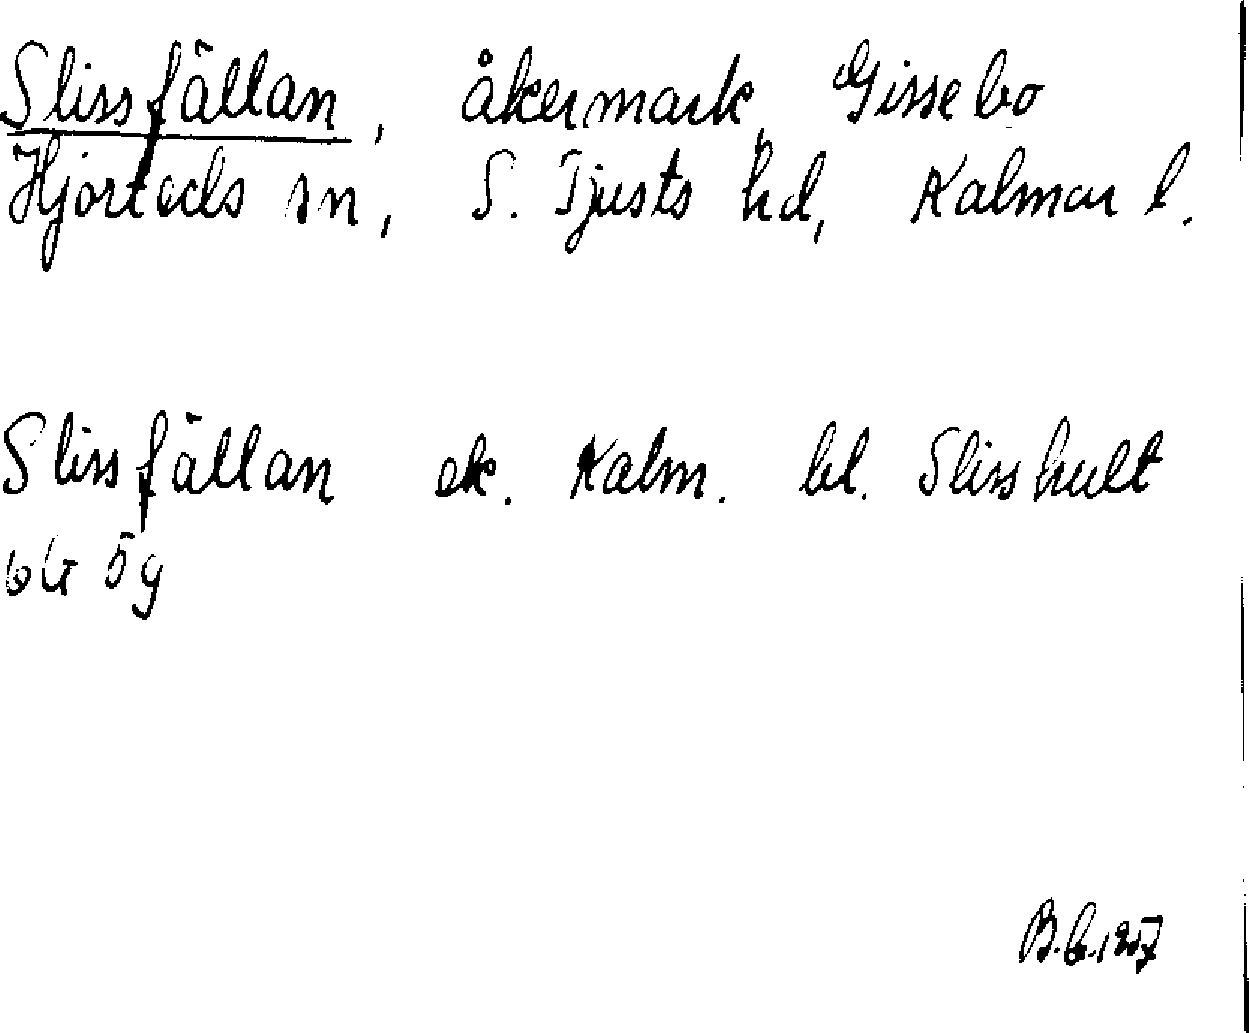 Slissfällan, åkermark, Gissebo
Hjorteds sn, S. Tjusts hd, Kalmar l.
Slissfällan ek. Kalm. bl. Slisshult
6G 5g